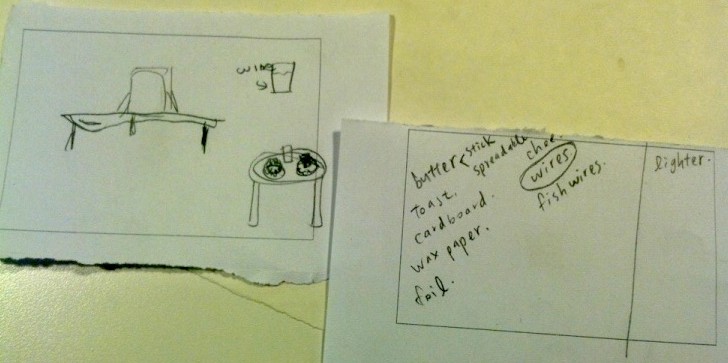 wine
butter < stick
spreadable
toast.
cardboard.
wax paper.
foil.
wires
fish wires.
lighter.